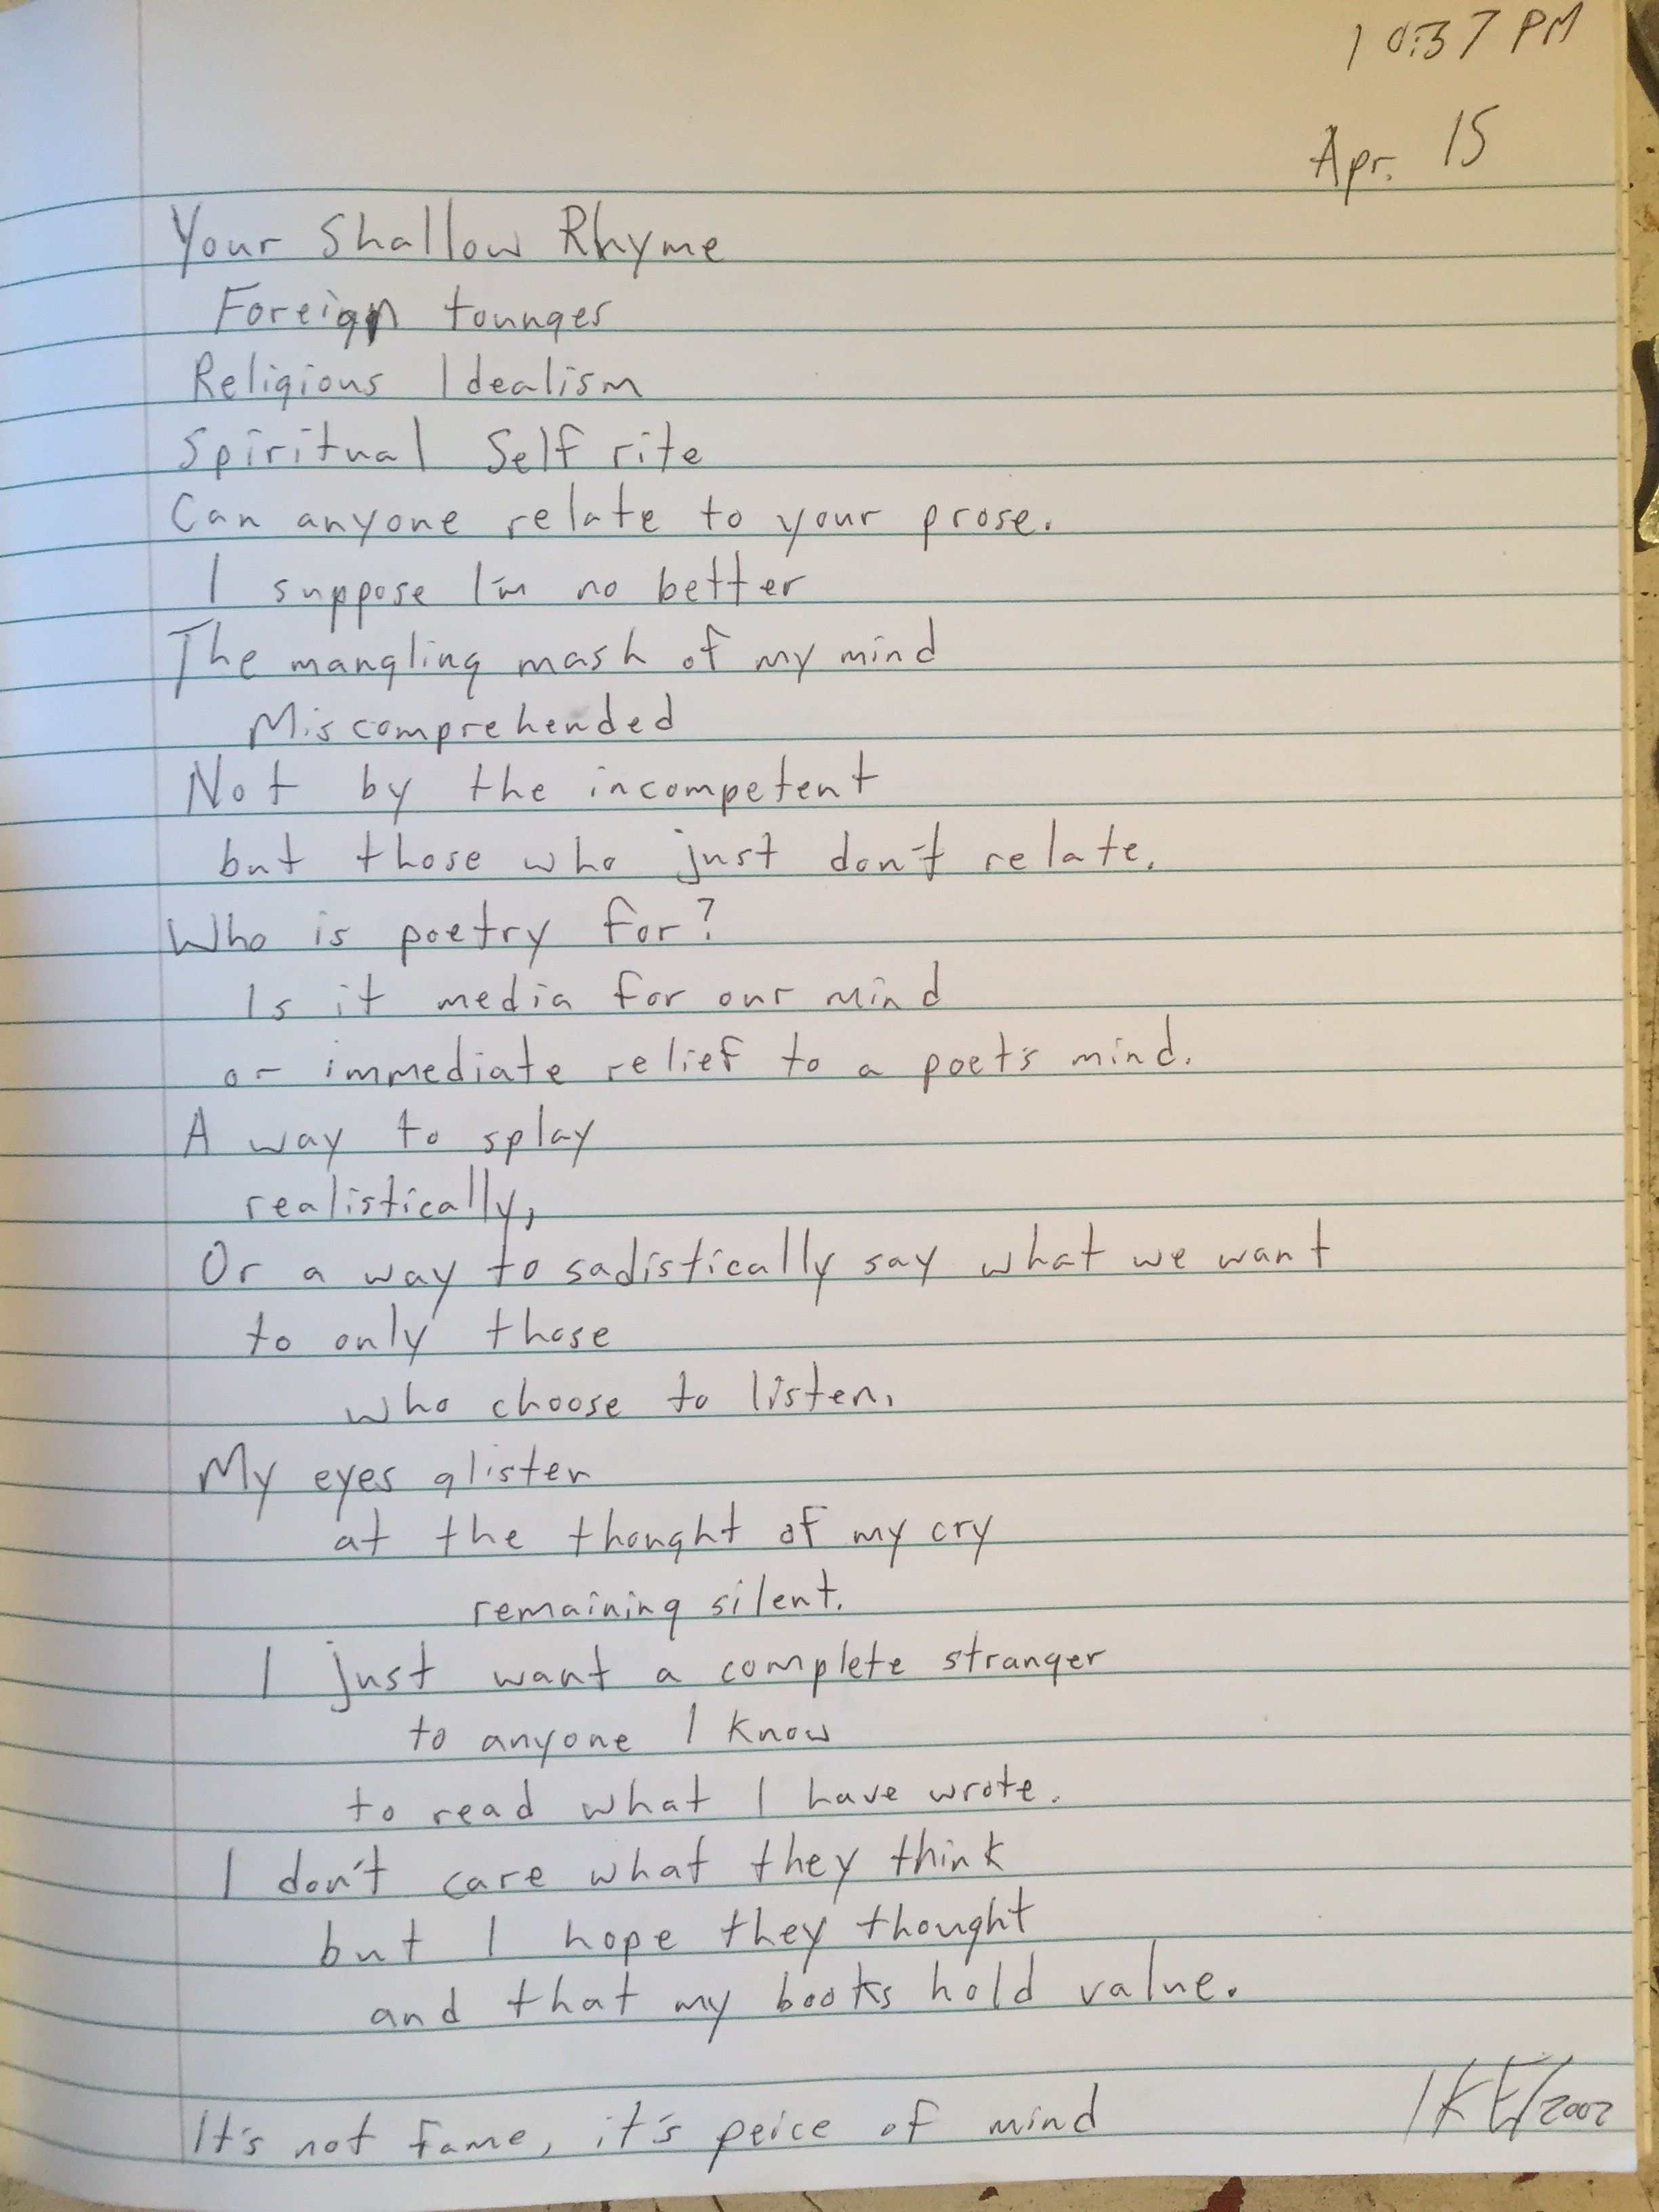 10:37 PM
Apr. 15
Your Shallow Rhyme
Foreign tounges
Religious Idealism
Spiritual Self rite
Can anyone relate to your prose.
I suppose I'm no better
The mangling mash of my mind
Miscomprehended
Not by the incompetent
but those who just don't relate.
Who is poetry for?
Is it media for our mind
or immediate relief to a poet's mind.
A way to splay
realistically,
Or a way to sadistically say what we want
to only those
who choose to listen.
My eyes glister
at the thought of my cry
remaining silent.
I just want a complete stranger
to anyone I know
to read what I have wrote.
I don't care what they think
but I hope they thought
and that my books hold value.
It's not fame, it's peice of mind
IKE/2002